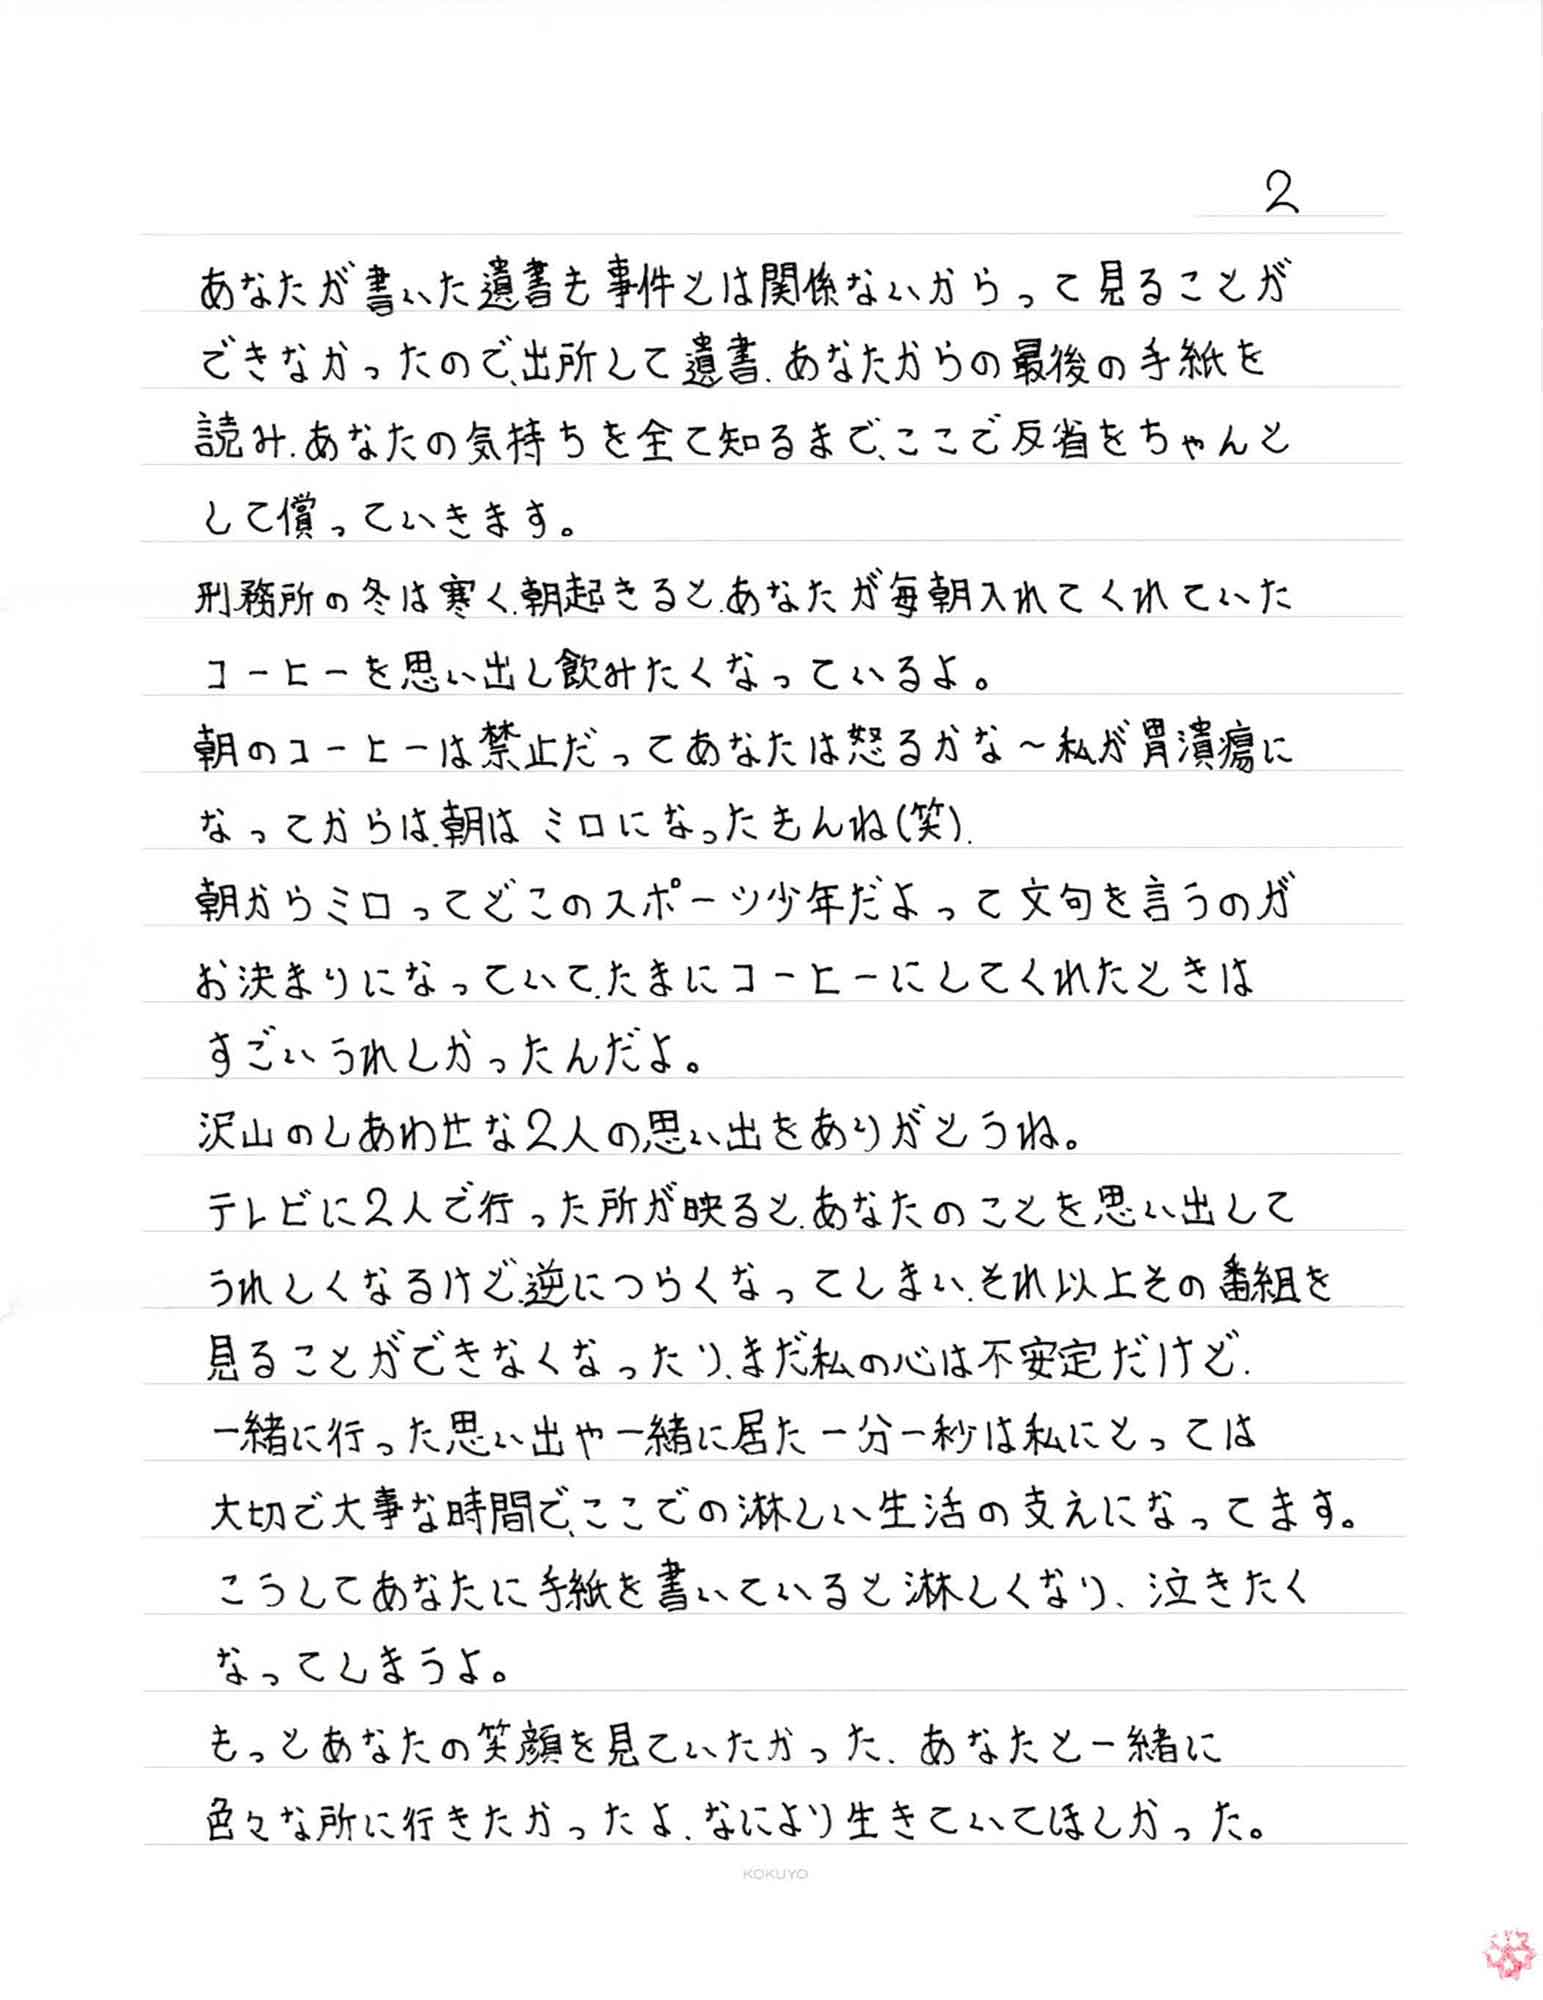 2
あなたが書いた遺書も事件とは関係ないからって見ることが
できなかったので、出所して遺書、あなたからの最後の手紙を
読み、あなたの気持ちを全て知るまで、ここで反省をちゃんと
して償っていきます。
刑務所の冬は寒く、朝起きると、あなたが毎朝入れてくれていた
コーヒーを思い出し飲みたくなっているよ。
朝のコーヒーは禁止だってあなたは怒るかな〜私が胃潰瘍に
なってからは、朝はミロになったもんね(笑)、
朝からミロってどこのスポーツ少年だよって文句を言うのが
お決まりになっていて、たまにコーヒーにしてくれたときは
すごいうれしかったんだよ。
沢山のしあわせな2人の思い出をありがとうね。
テレビに2人で行った所が映ると、あなたのことを思い出して
うれしくなるけど、逆につらくなってしまい、それ以上その番組を
見ることができなくなったり、まだ私の心は不安定だけど、
一緒に行った思い出や一緒に居た一分一秒は私にとっては
大切で大事な時間で、ここでの淋しい生活の支えになってます。
こうしてあなたに手紙を書いていると淋しくなり、泣きたく
なってしまうよ。
もっとあなたの笑顔を見ていたかった、あなたと一緒に
色々な所に行きたかったよ、なにより生きていてほしかった。
KOKUYO